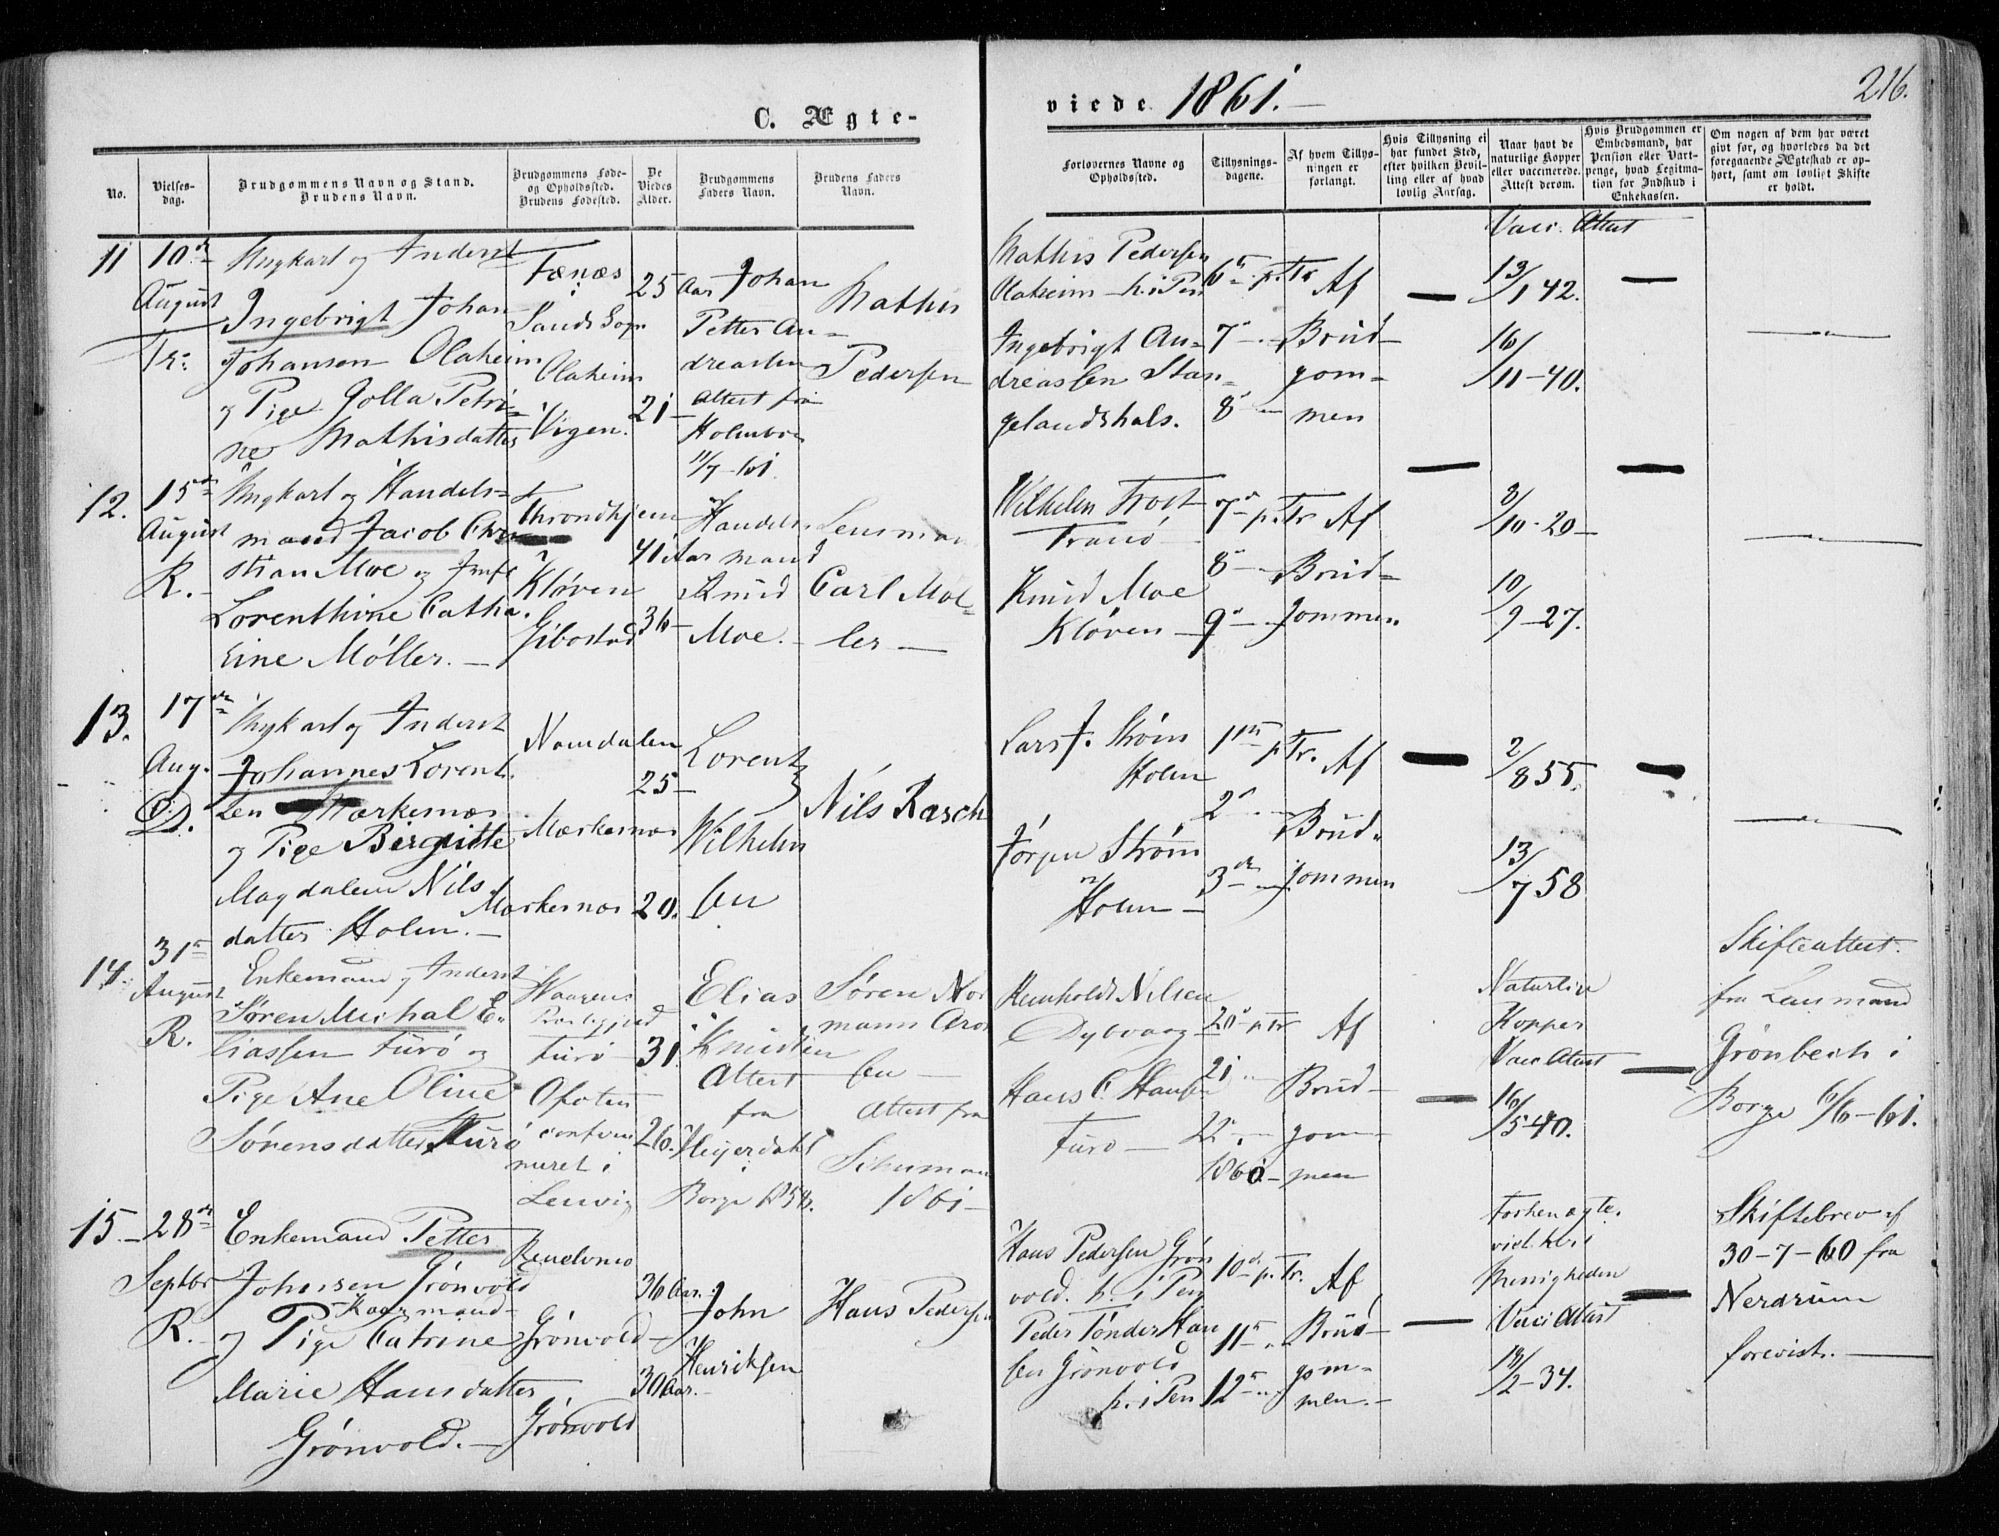 C. Ægte-
viede 1861.
216.
No.
Vielses-
dag.
Brudgommens Navn og Stand.
Brudens Navn.
Brudgommens Føde-
og Opholdssted.
Brudens Fødested.
De
Viedes
Alder.
Brudgommens
Faders Navn.
Brudens Faders
Navn.
Forlovernes Navne og
Opholdssted.
Tillysnings-
dagene.
Af hvem Tillys-
ningen er
forlangt.
Hvis Tillysning ei
har fundet Sted,
efter hvilken Bevil-
ling eller af hvad
lovlig Aarsag.
Naar havt de
naturlige Kopper
eller vaccinerede.
Attest derom.
Hvis Brudgommen er
Embedsmand, har
Pension eller Vart-
penge, hvad Legitima-
tion for Indskud i
Enkekassen.
Om nogen af dem har været
givt før, og hvorledes da det
foregaaende Ægteskab er op-
hørt, samt om lovligt Skifte
er holdt.
11
10de
August
Tr.
Ungkarl og Inderst
Ingebrigt Johan
Johansen Olaheim
og Pige Golla Petri-
ne Mathisdatter
Tænæs
i
Sands Sogn
Olaheim
Vigen.
25 Aar
21
Johan
Petter An-
dreassen
Attest fra
Holmboe
11/7-61.
Mathis
Pedersen
Mathis Pedersen
Olaheim h. i Pen
Ingebrigt An-
dreassen Stan-
gelandshals.
6te p. Tr
7
8
Af
Brud-
gom-
men
Vacc. Attest
13/1 42.
16/11-40.
12.
15de
August
R.
Ungkarl og Handels-
mand Jacob Chri
stian Moe og Jomf
Lorenthine Catha.
rine Möller.
Throndhjem
Kløven
Gibostad
41 Aar
36
Handels
mand
Knud
Moe.
Lensman
Carl Möl-
ler
Wilhelm Trost
Tranö
Knud Moe
Kløven
7de p. Tr
8
9
Af
Brud-
gommen
3/10-20
10/9-27.
13.
17de
Aug.
D.
Ungkarl og Inderst
Johannes Lorent
zen Mærkesnæs
og Pige Birgitte
Magdalene Nils
datter Holm.
Namdalen
Mærkesnæs
Mærkesnæs
25
20.
Lorentz
Wilhelm
sen
Nils Rasch
Lars J. Strøm
Holm
Jörgen Strøm
Holm
1ste p. Tr.
2
3de
Af
Brud-
gommen
2/8 55.
13/7 58
14.
31te
August
R.
Enkemand og Inderst
Søren Michal E-
liassen Furö og
Pige Ane Oline
Sørensdatter Furö
Vaagens
Præstegjeld
Furö
Ofoten
confirme
meret i
Lenvig
31
26.
Elias
Knudsen
Attest
fra
Heyerdahl
i
Borge 1858.
Søren Nor
mann Aron
sen
Attest fra
Schuman
1861
Hemholdt Nilsen
Dybvaag
Hans C. Hansen
Furö
20de p Tr
21
22
1860
Af
Brud-
gom-
men
Naturlige
Kopper
Vacc Attest
16/5 40.
Skifteattest
fra Lensmand
Grønbech i
Borge 6/6-61.
15
28de
Septbr
R.
Enkemand Petter
Johnsen Grönvold
Kaarmand
og Pige Catrine
Marie Hansdatter
Grönvold.
Grönvold
Grönvold
36 Aar.
30 Aar.
John
Henriksen
Hans Pedersen
Hans Pedersen Grön
vold. h. i Pen
Peder Tønder Han
sen Grönvold
h. i Pen
10de p. Tr.
11te
12te
Af
Brud-
gom-
men.
Forhen ægte-
viet her i
Menigheden
Vacc Attest
18/2-34.
Skiftebrev af
30-7-60 fra
Nerdrum
forevist.